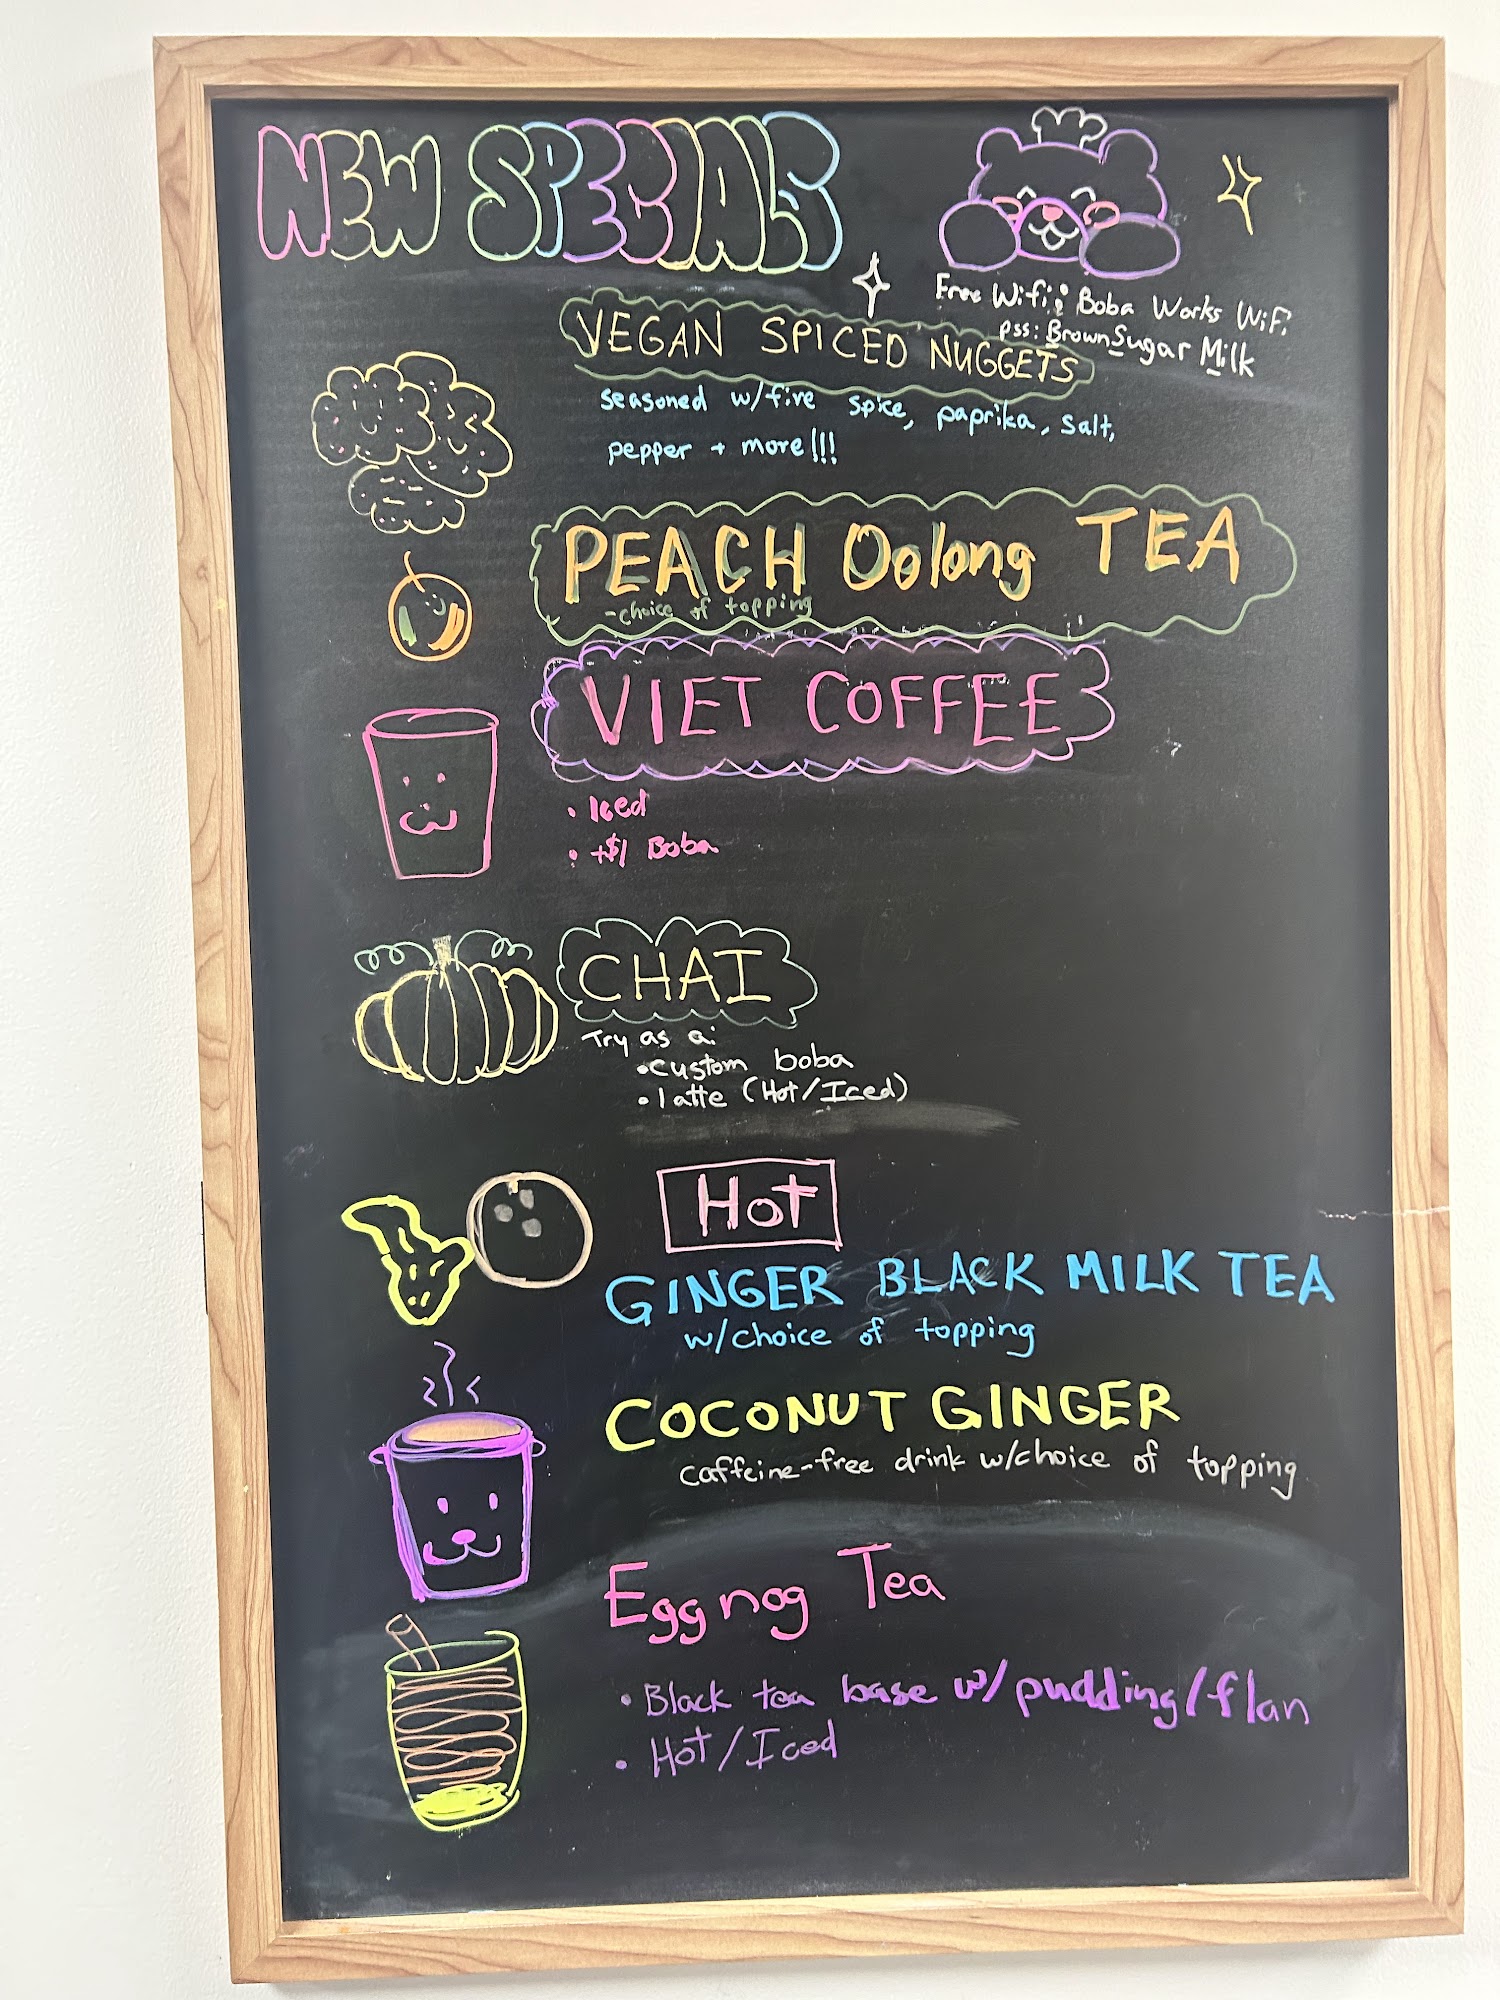 NEW SPECIALS
Free Wifi: Boba Works WiFi
pss: BrownSugar Milk
VEGAN SPICED NUGGETS
seasoned w/five spice, paprika, salt,
pepper + more!!!
PEACH Oolong TEA
-choice of topping
VIET COFFEE
• Iced
• +$1 Boba
CHAI
Try as a:
• custom boba
• latte (Hot/Iced)
Hot
GINGER BLACK MILK TEA
w/choice of topping
COCONUT GINGER
caffeine-free drink w/choice of topping
Eggnog Tea
• Black tea base w/pudding/flan
• Hot/Iced